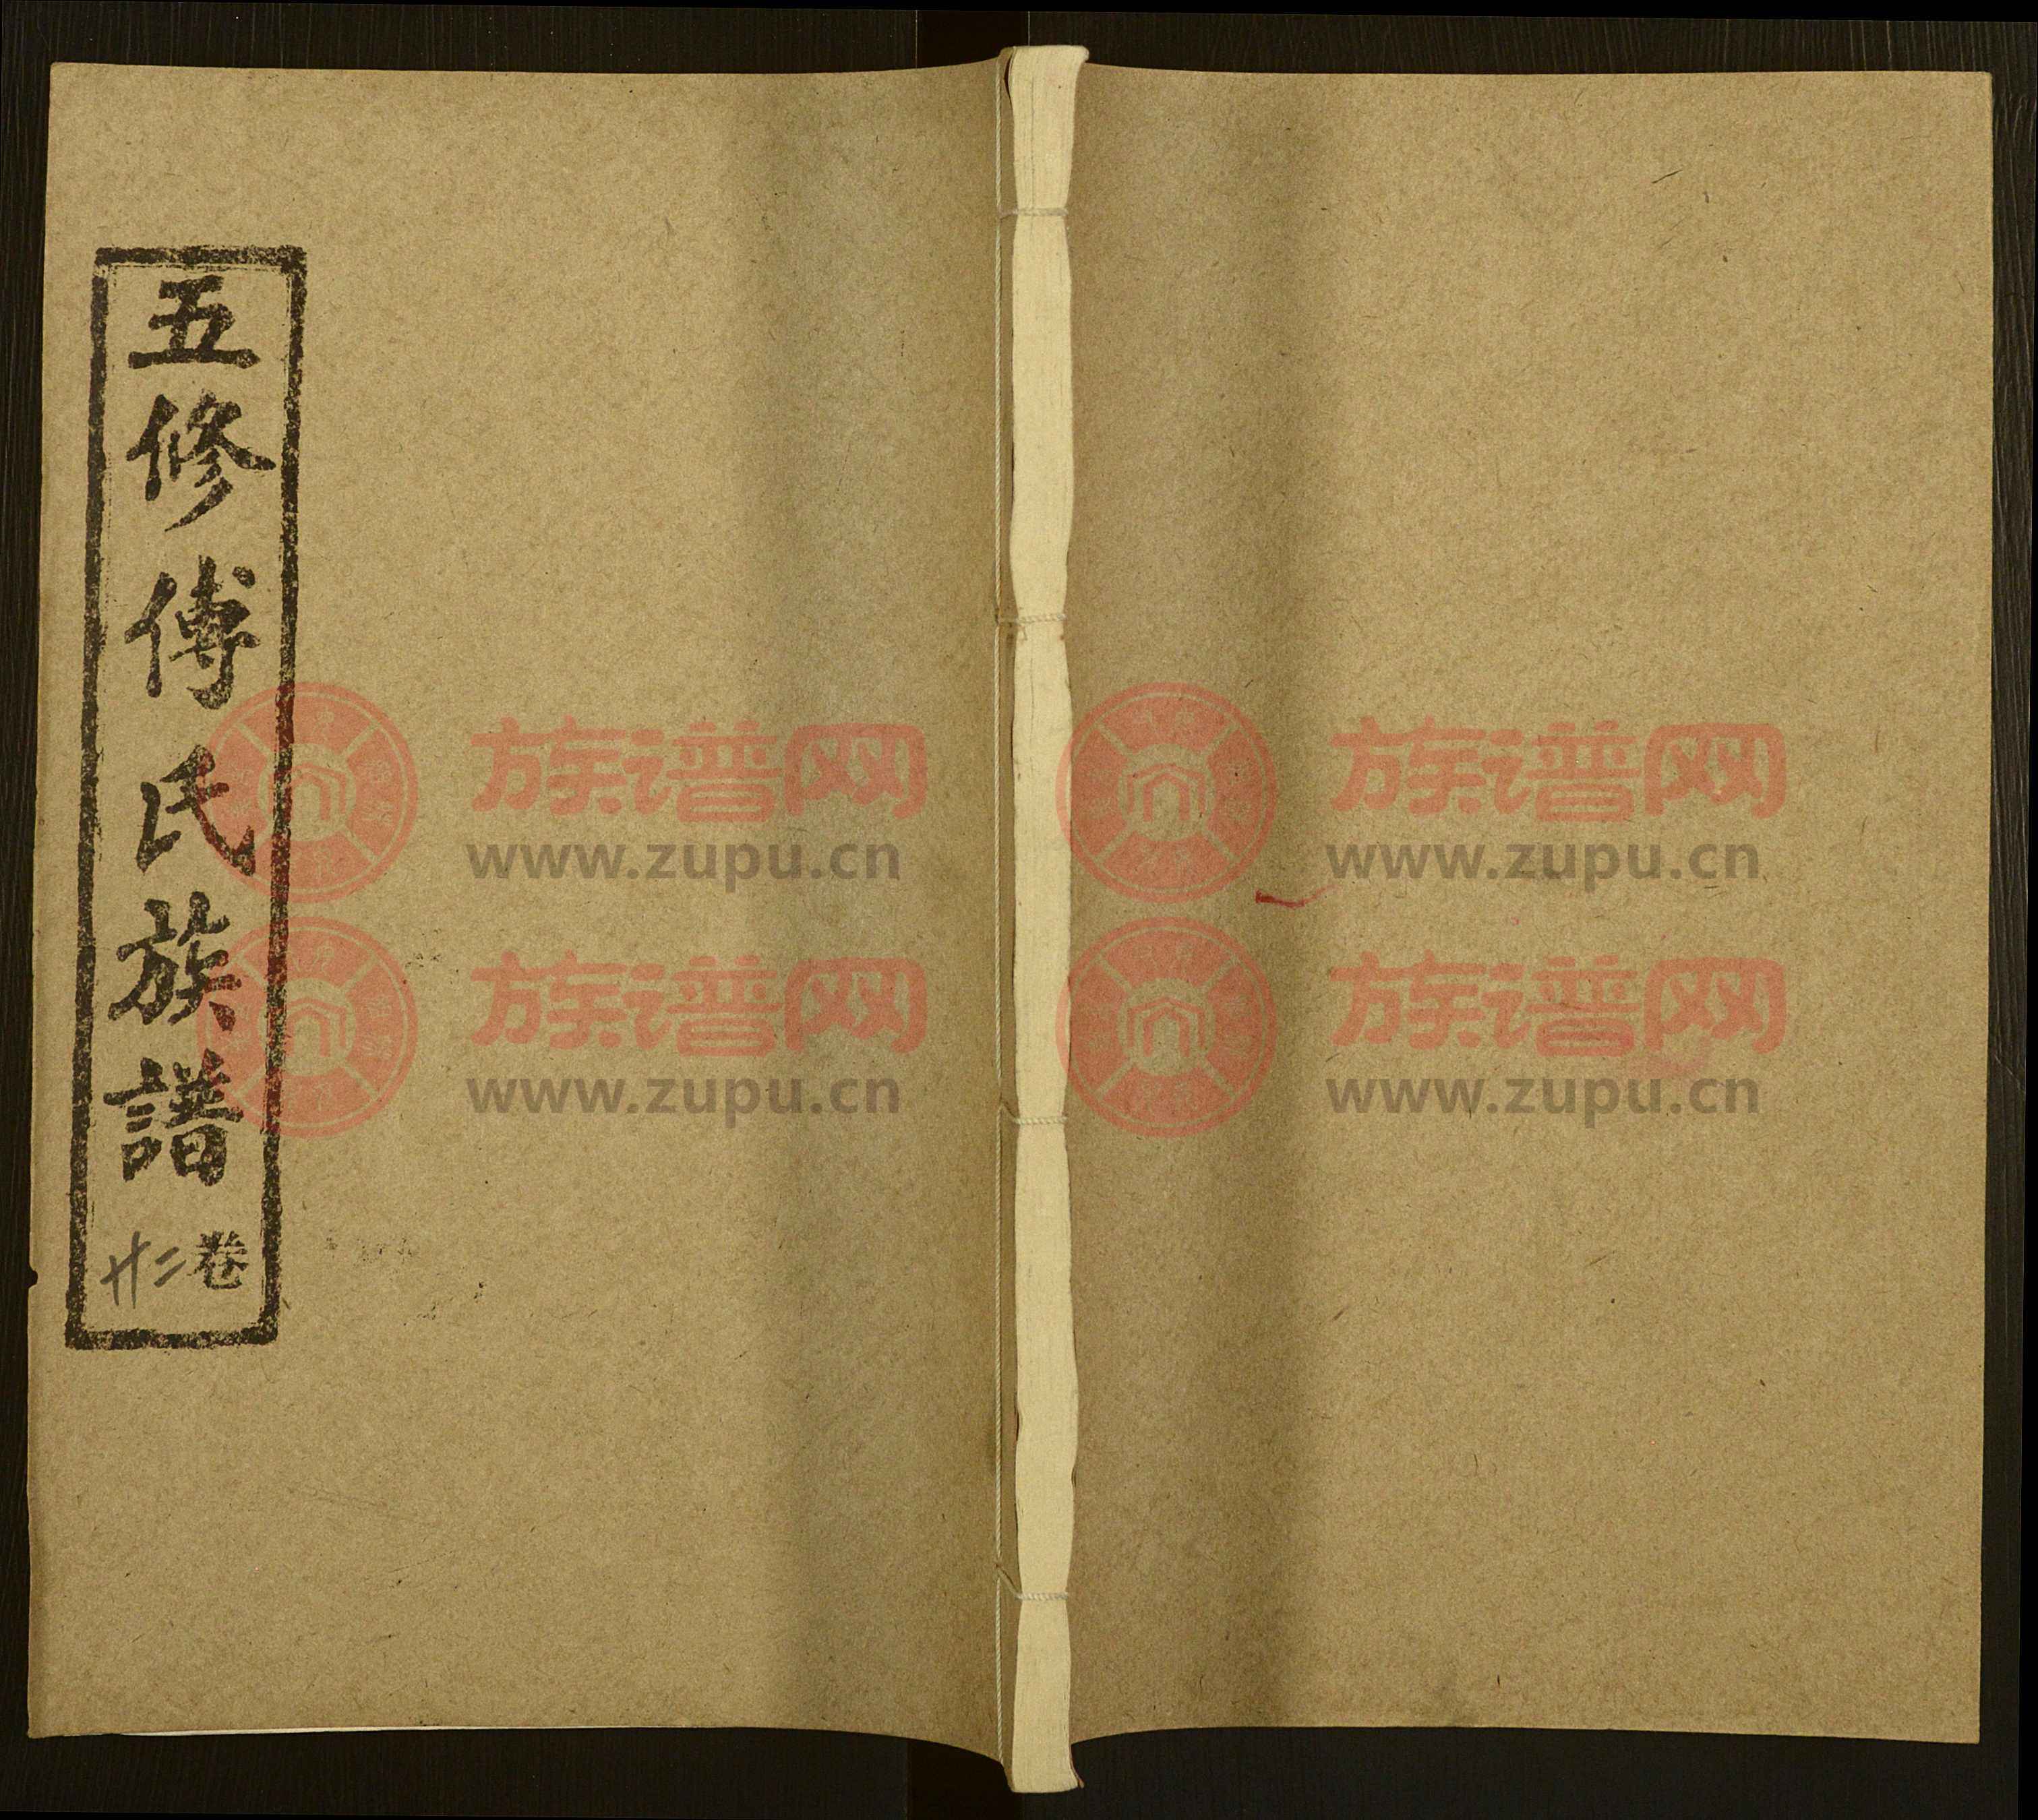 五修傅氏族譜
卷廿二
族谱网
www.zupu.cn
族谱网
www.zupu.cn
族谱网
www.zupu.cn
族谱网
www.zupu.cn